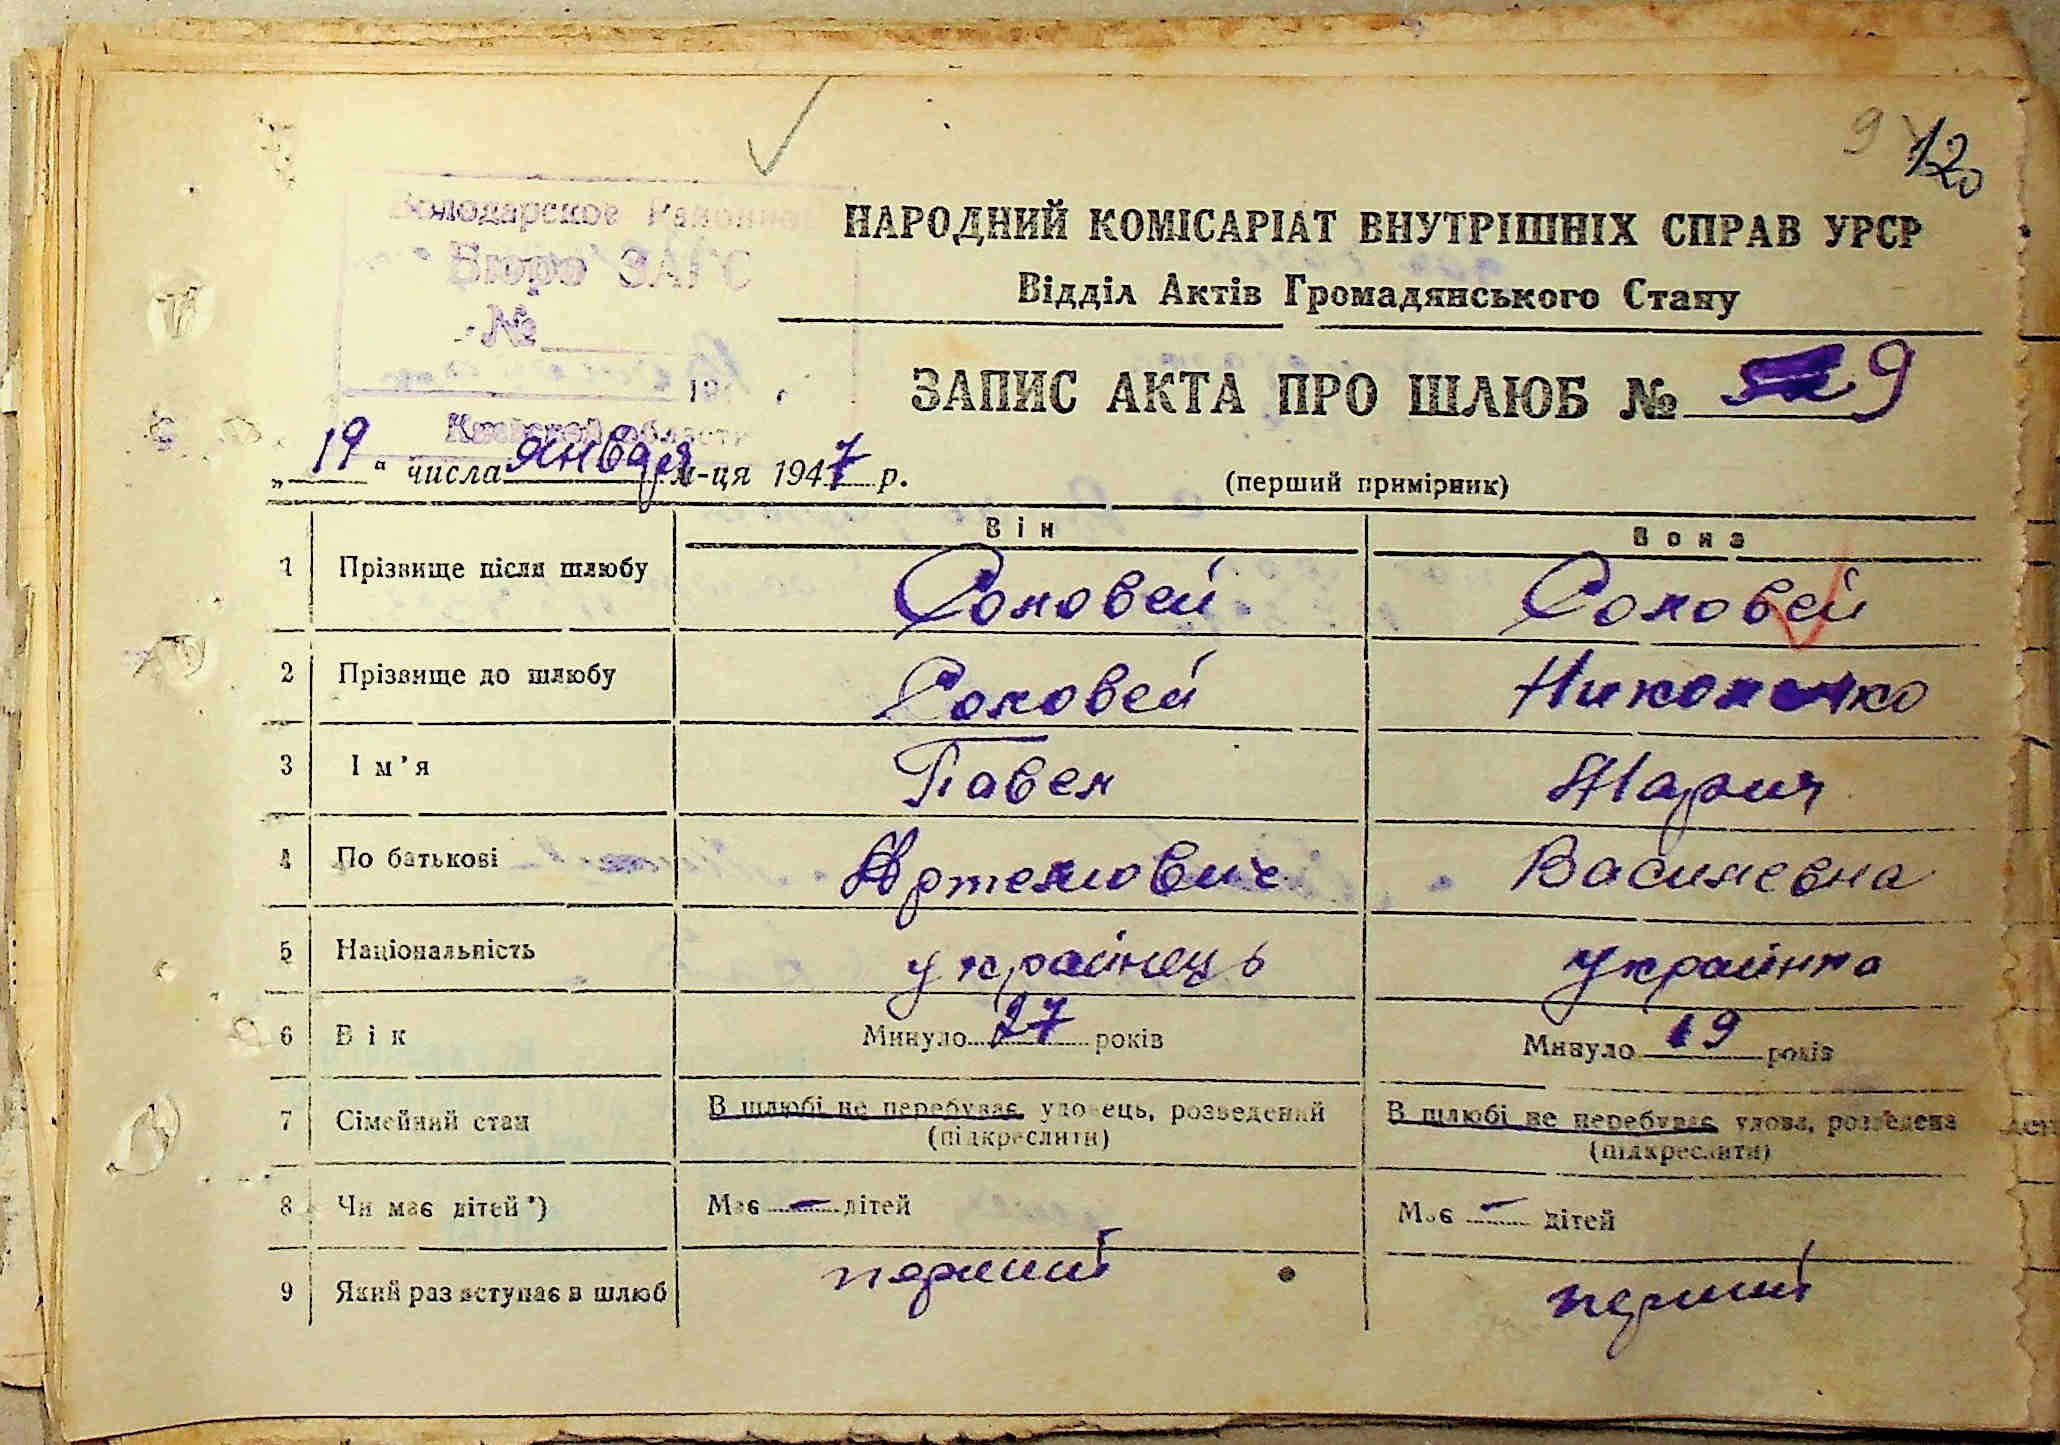 9 120
Володарское Районное
Бюро ЗАГС
№
194
Киевской области
НАРОДНИЙ КОМІСАРІАТ ВНУТРІШНІХ СПРАВ УРСР
Відділ Актів Громадянського Стану
ЗАПИС АКТА ПРО ШЛЮБ № 9
„19“ числа января м-ця 1947 р.
(перший примірник)
Він Вона
1 Прізвище після шлюбу Соловей Соловей
2 Прізвище до шлюбу Соловей Николенко
3 Ім’я Павел Мария
4 По батькові Артемович Василевна
5 Національність украйнець украйнка
6 Вік Минуло 27 років Минуло 19 років
7 Сімейний стан В шлюбі не перебуває, удовець, розведений В шлюбі не перебуває, удова, розведена
(підкреслити) (підкреслити)
8 Чи має дітей*) Має – дітей Має – дітей
9 Який раз вступає в шлюб перший перший